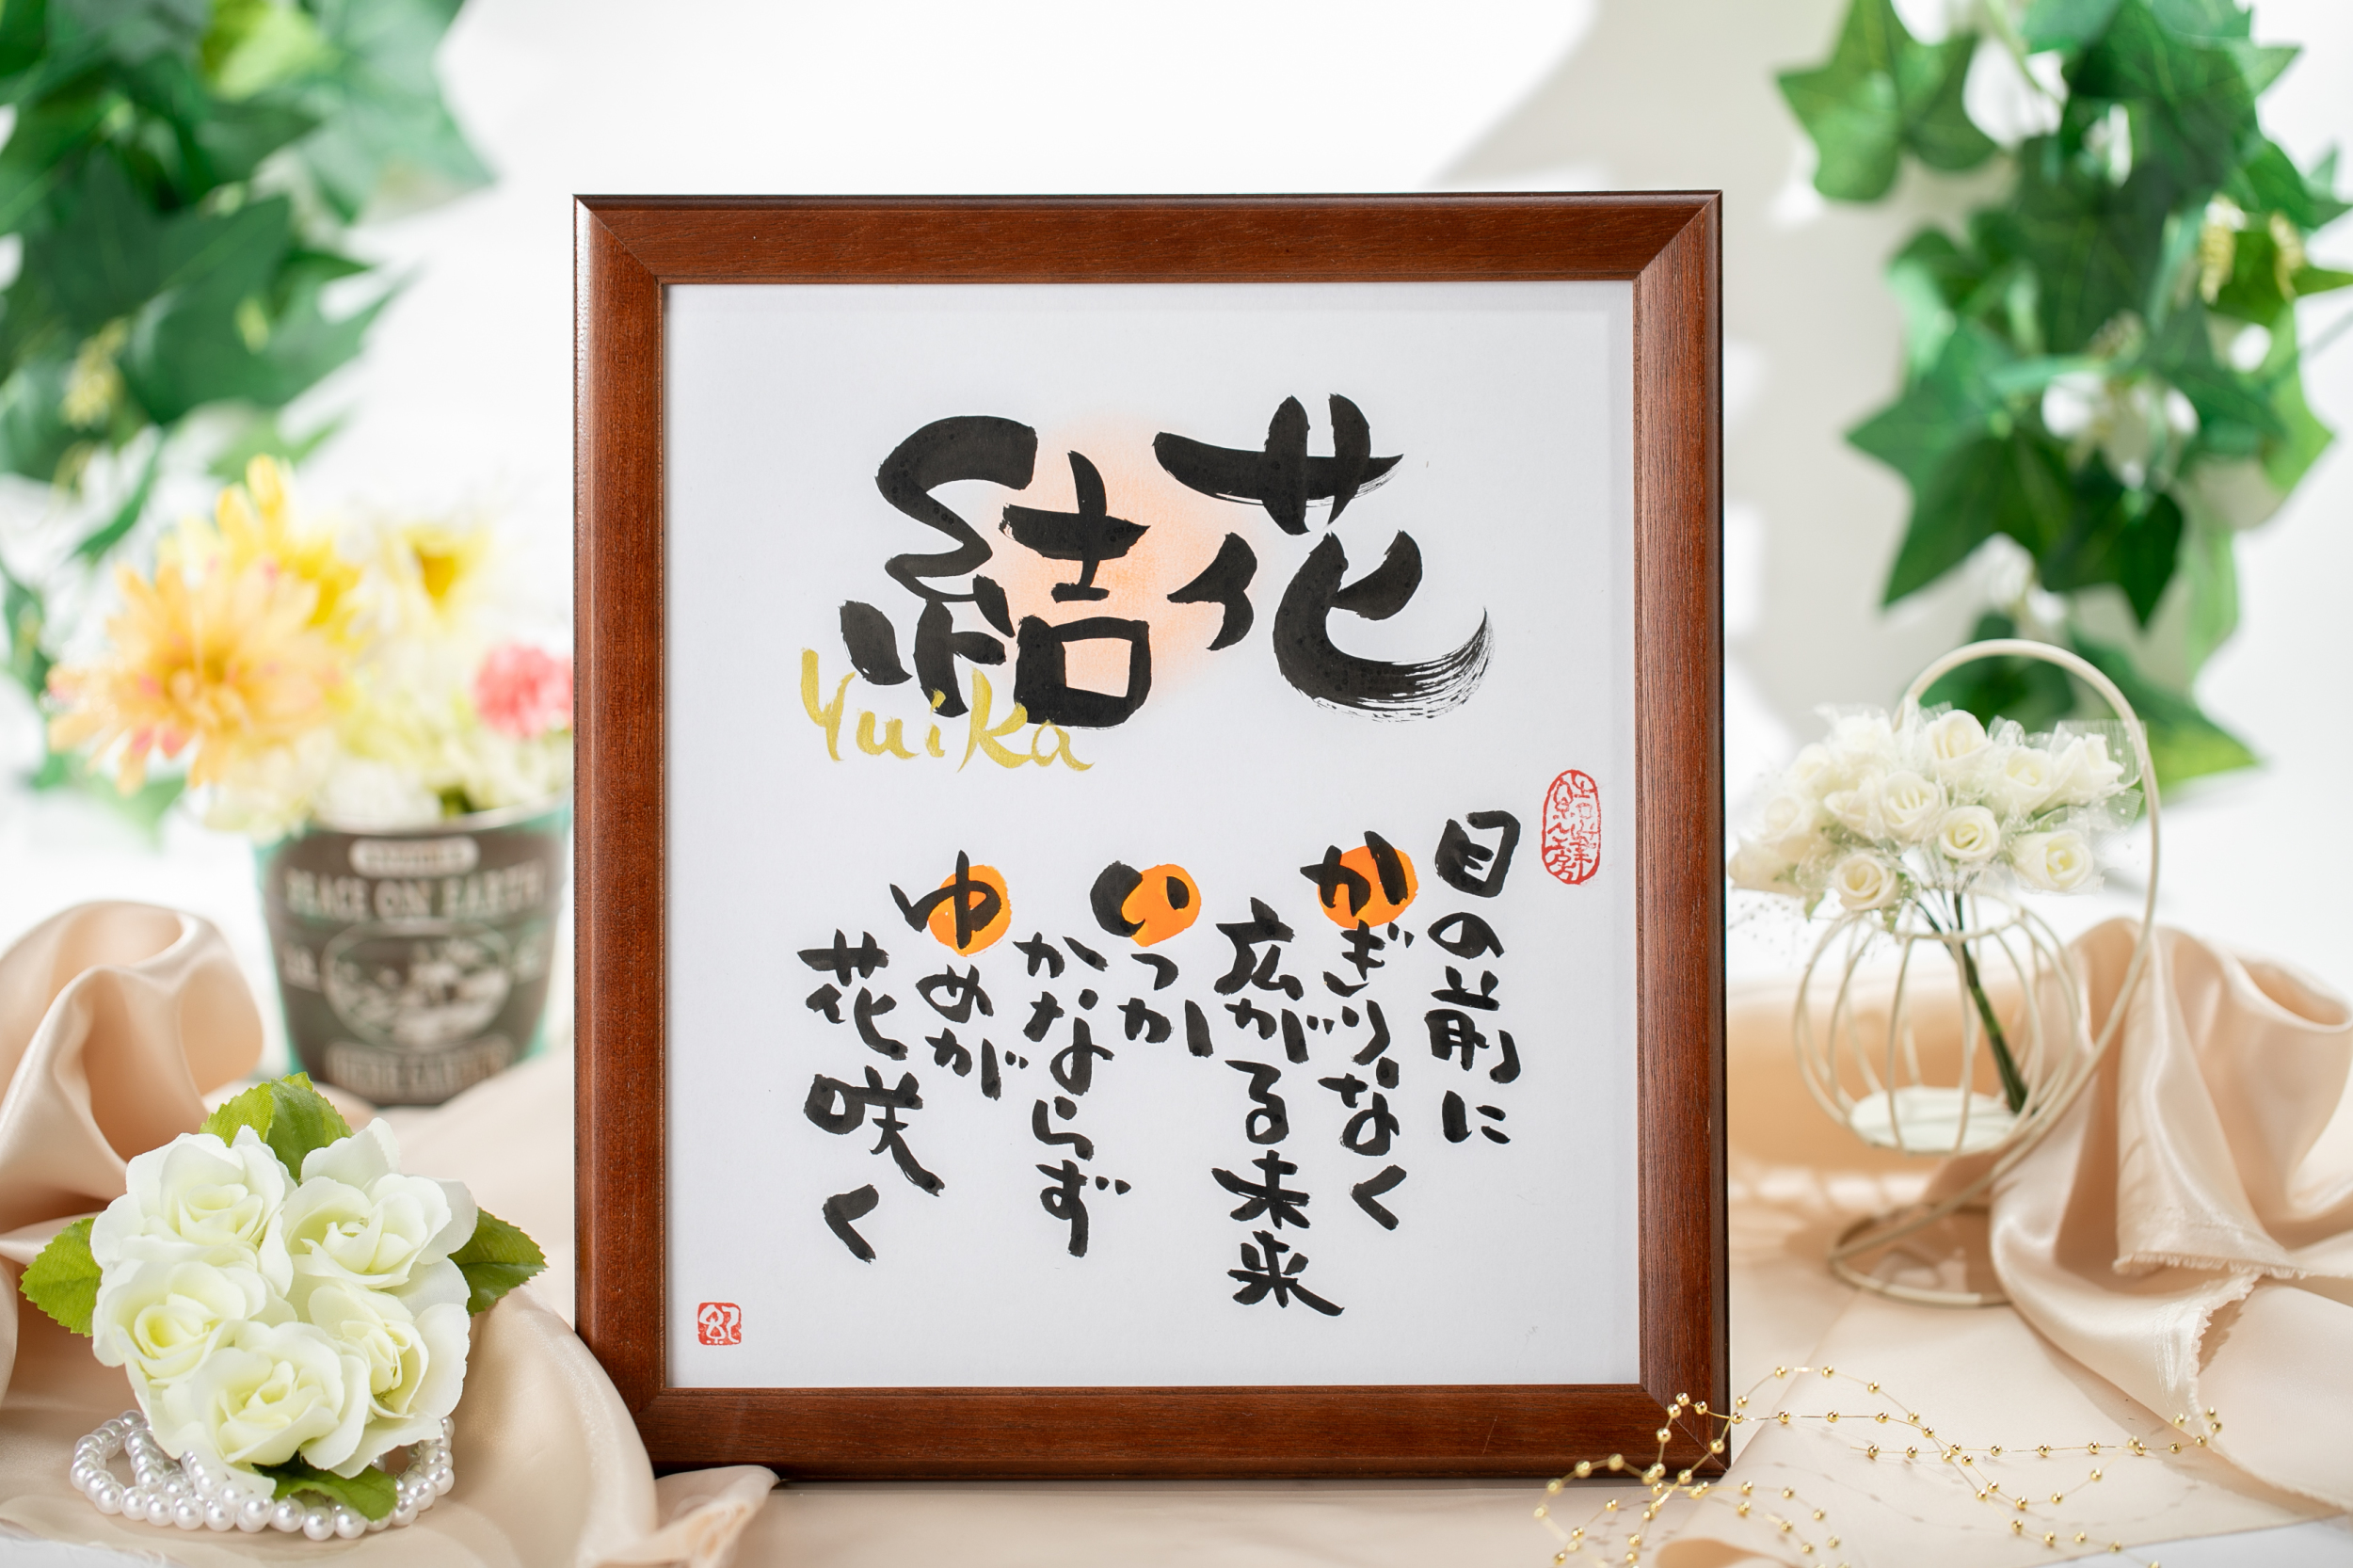 結花
Yuika
目の前に
かぎりなく
広がる未来
いつか
かならず
ゆめが
花咲く
PEACE ON EARTH